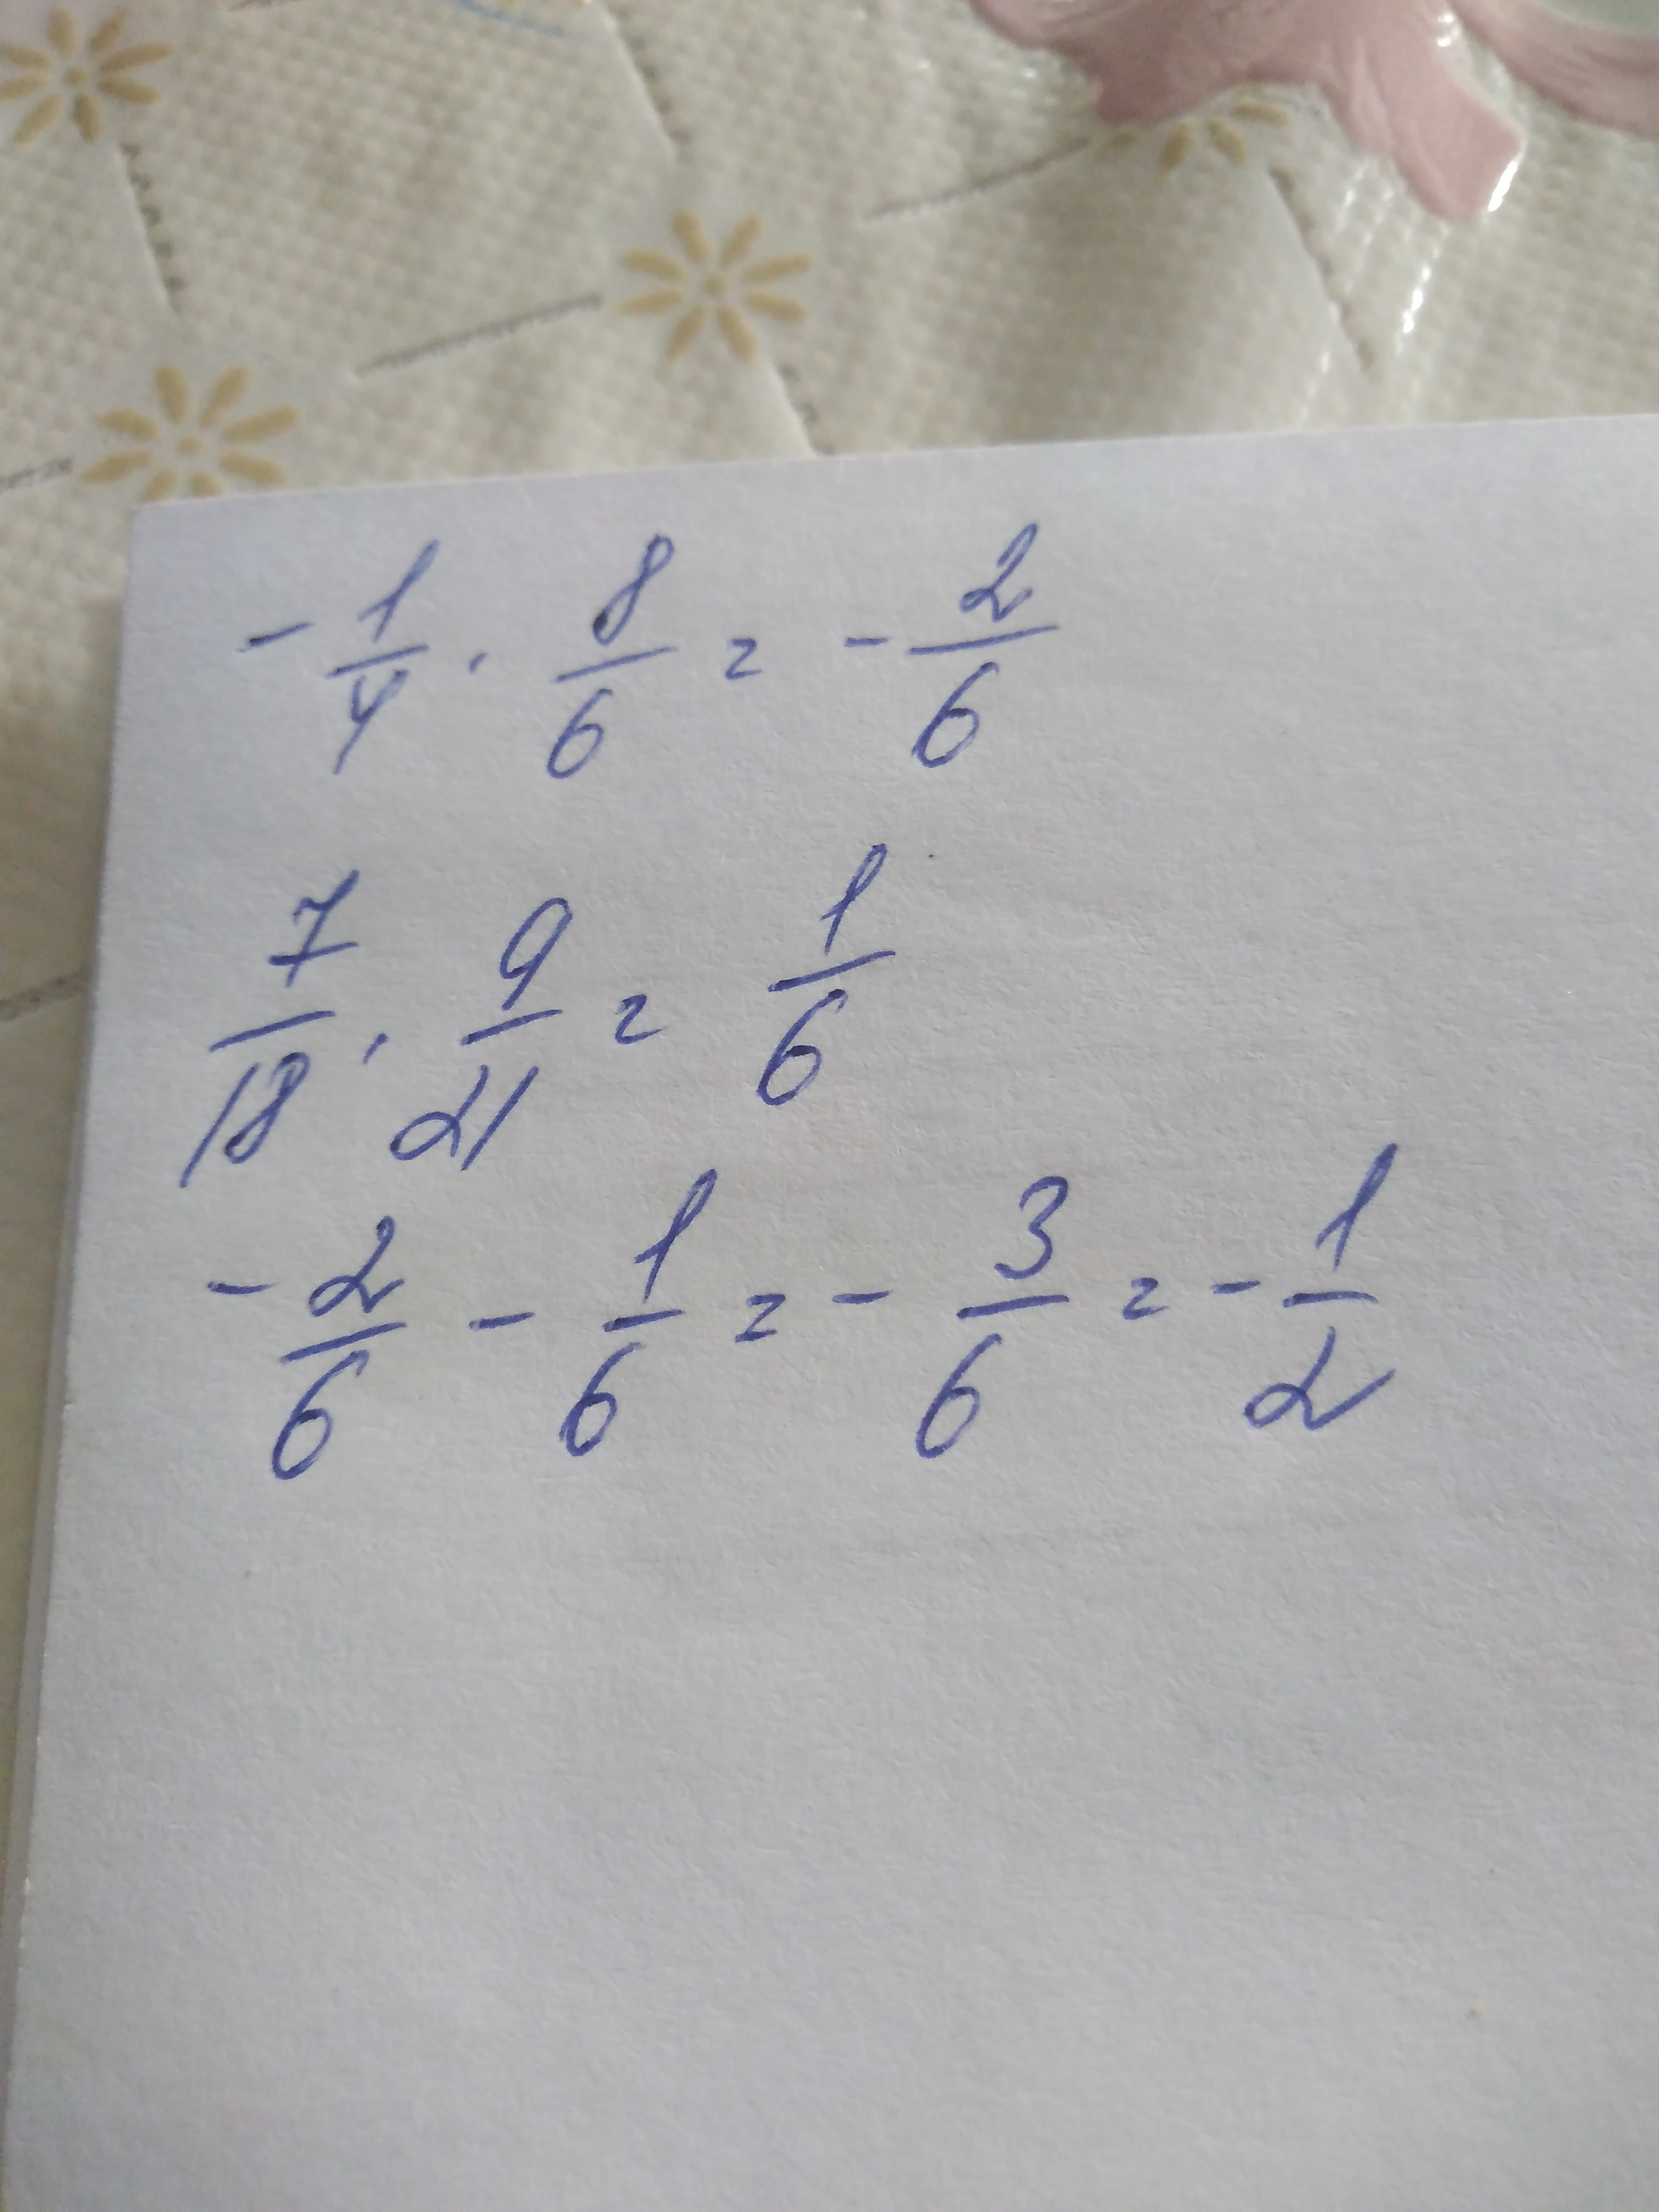 -1/4 · 8/6 = -2/6
7/18 · 9/21 = 1/6
-2/6 - 1/6 = -3/6 = -1/2